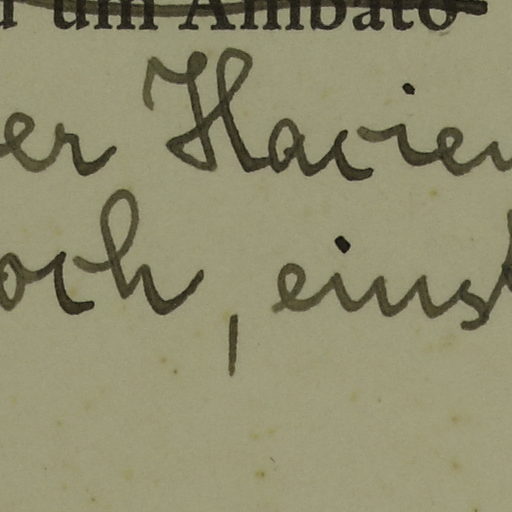 um Ambato
er Hacien
och, einst